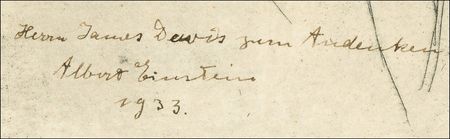 Herrn James Davis zum Andenken
Albert Einstein
1933.